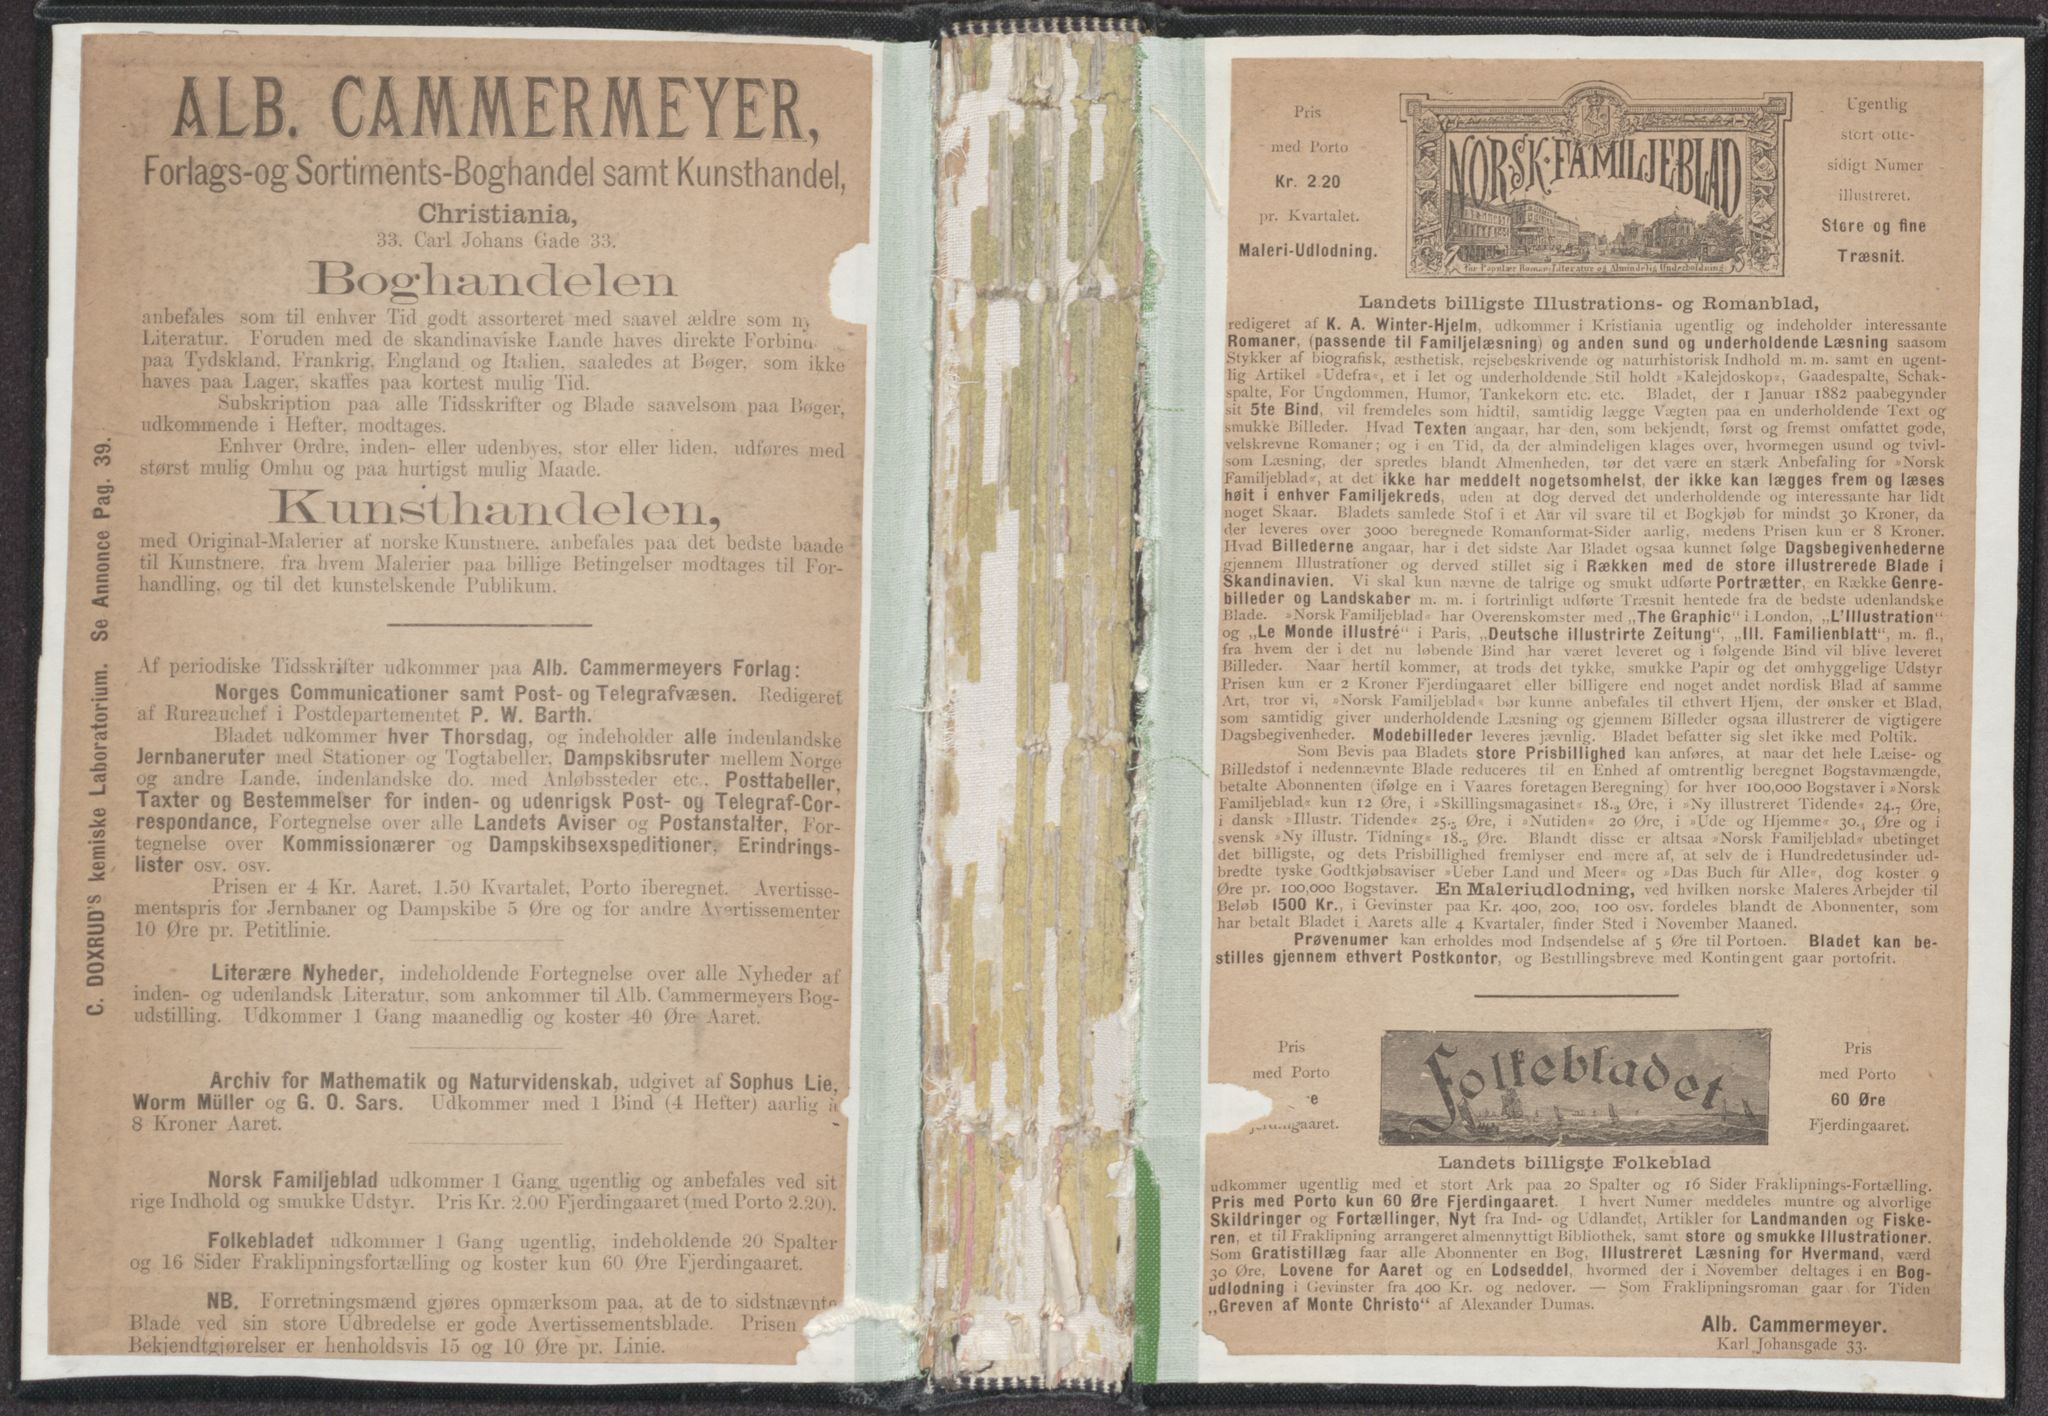 ALB. CAMMERMEYER,
Forlags-og Sortiments-Boghandel samt Kunsthandel,
Christiania,
33. Carl Johans Gade 33.
Boghandelen
anbefales som til enhver Tid godt assorteret med saavel ældre som
Literatur. Foruden med de skandinaviske Lande haves direkte Forbin
paa Tydskland, Frankrig, England og Italien, saaledes at Bøger, som ikke
haves paa Lager, skaffes paa kortest mulig Tid.
Subskription paa alle Tidsskrifter og Blade saavelsom paa Bøger,
udkommende i Hefter, modtages.
Enhver Ordre, inden- eller udenbyes, stor eller liden, udføres med
størst mulig Omhu og paa hurtigst mulig Maade.
Kunsthandelen,
med Original-Malerier af norske Kunstnere, anbefales paa det bedste baade
til Kunstnere, fra hvem Malerier paa billige Betingelser modtages til For-
handling, og til det kunstelskende Publikum.
Af periodiske Tidsskrifter udkommer paa Alb. Cammermeyers Forlag:
Norges Communicationer samt Post- og Telegrafvæsen. Redigeret
af Bureauchef i Postdepartementet P. W. Barth.
Bladet udkommer hver Thorsdag, og indeholder alle indenlandske
Jernbaneruter med Stationer og Togtabeller, Dampskibsruter mellem Norge
og andre Lande, indenlandske do. med Anløbssteder etc., Posttabeller,
Taxter og Bestemmelser for inden- og udenrigsk Post- og Telegraf-Cor-
respondance, Fortegnelse over alle Landets Aviser og Postanstalter, For-
tegnelse over Kommissionærer og Dampskibsexspeditioner, Erindrings-
lister osv. osv.
Prisen er 4 Kr. Aaret, 1.50 Kvartalet, Porto iberegnet. Avertisse-
mentspris for Jernbaner og Dampskibe 5 Øre og for andre Avertissementer
10 Øre pr. Petitlinie.
Literære Nyheder, indeholdende Fortegnelse over alle Nyheder af
inden- og udenlandsk Literatur, som ankommer til Alb. Cammermeyers Bog-
udstilling. Udkommer 1 Gang maanedlig og koster 40 Øre Aaret.
Archiv for Mathematik og Naturvidenskab, udgivet af Sophus Lie,
Worm Müller og G. O. Sars. Udkommer med 1 Bind (4 Hefter) aarlig à
8 Kroner Aaret.
Norsk Familjeblad udkommer 1 Gang ugentlig og anbefales ved sit
rige Indhold og smukke Udstyr. Pris Kr. 2.00 Fjerdingaaret (med Porto 2.20).
Folkebladet udkommer 1 Gang ugentlig, indeholdende 20 Spalter
og 16 Sider Fraklipningsfortælling og koster kun 60 Øre Fjerdingaaret.
NB. Forretningsmænd gjøres opmærksom paa, at de to sidstnævnte
Blade ved sin store Udbredelse er gode Avertissementsblade. Prisen
Bekjendtgjørelser er henholdsvis 15 og 10 Øre pr. Linie.
C. DOXRUD'S kemiske Laboratorium. Se Annonce Pag. 39.
Pris
med Porto
Kr. 2.20
pr. Kvartalet.
Maleri-Udlodning.
NORSK·FAMILJEBLAD
for Populær Roman-Literatur og Almindelig Underholdning
Ugentlig
stort otte-
sidigt Numer
illustreret.
Store og fine
Træsnit.
Landets billigste Illustrations- og Romanblad,
redigeret af K. A. Winter-Hjelm, udkommer i Kristiania ugentlig og indeholder interessante
Romaner, (passende til Familjelæsning) og anden sund og underholdende Læsning saasom
Stykker af biografisk, æsthetisk, rejsebeskrivende og naturhistorisk Indhold m. m. samt en ugent-
lig Artikel »Udefra«, et i let og underholdende Stil holdt »Kalejdoskop«, Gaadespalte, Schak-
spalte, For Ungdommen, Humor, Tankekorn etc. etc. Bladet, der 1 Januar 1882 paabegynder
sit 5te Bind, vil fremdeles som hidtil, samtidig lægge Vægten paa en underholdende Text og
smukke Billeder. Hvad Texten angaar, har den, som bekjendt, først og fremst omfattet gode,
velskrevne Romaner; og i en Tid, da der almindeligen klages over, hvormegen usund og tvivl-
som Læsning, der spredes blandt Almenheden, tør det være en stærk Anbefaling for »Norsk
Familjeblad«, at det ikke har meddelt nogetsomhelst, der ikke kan lægges frem og læses
høit i enhver Familjekreds, uden at dog derved det underholdende og interessante har lidt
noget Skaar. Bladets samlede Stof i et Aar vil svare til et Bogkjøb for mindst 30 Kroner, da
der leveres over 3000 beregnede Romanformat-Sider aarlig, medens Prisen kun er 8 Kroner.
Hvad Billederne angaar, har i det sidste Aar Bladet ogsaa kunnet følge Dagsbegivenhederne
gjennem Illustrationer og derved stillet sig i Rækken med de store illustrerede Blade i
Skandinavien. Vi skal kun nævne de talrige og smukt udførte Portrætter, en Række Genre-
billeder og Landskaber m. m. i fortrinligt udførte Træsnit hentede fra de bedste udenlandske
Blade. »Norsk Familjeblad« har Overenskomster med „The Graphic“ i London, „L'Illustration“
og „Le Monde illustré“ i Paris, „Deutsche illustrirte Zeitung“, „Ill. Familienblatt“, m. fl.,
fra hvem der i det nu løbende Bind har været leveret og i følgende Bind vil blive leveret
Billeder. Naar hertil kommer, at trods det tykke, smukke Papir og det omhyggelige Udstyr
Prisen kun er 2 Kroner Fjerdingaaret eller billigere end noget andet nordisk Blad af samme
Art, tror vi, »Norsk Familjeblad« bør kunne anbefales til ethvert Hjem, der ønsker et Blad,
som samtidig giver underholdende Læsning og gjennem Billeder ogsaa illustrerer de vigtigere
Dagsbegivenheder. Modebilleder leveres jævnlig. Bladet befatter sig slet ikke med Poltik.
Som Bevis paa Bladets store Prisbillighed kan anføres, at naar det hele Læse- og
Billedstof i nedennævnte Blade reduceres til en Enhed af omtrentlig beregnet Bogstavmængde,
betalte Abonnenten (ifølge en i Vaares foretagen Beregning) for hver 100,000 Bogstaver i »Norsk
Familjeblad« kun 12 Øre, i »Skillingsmagasinet« 18.₃ Øre, i »Ny illustreret Tidende« 24.₇ Øre,
i dansk »Illustr. Tidende« 25.₅ Øre, i »Nutiden« 20 Øre, i »Ude og Hjemme« 30.₄ Øre og i
svensk »Ny illustr. Tidning« 18.₅ Øre. Blandt disse er altsaa »Norsk Familjeblad« ubetinget
det billigste, og dets Prisbillighed fremlyser end mere af, at selv de i Hundredetusinder ud-
bredte tyske Godtkjøbsaviser »Ueber Land und Meer« og »Das Buch für Alle«, dog koster 9
Øre pr. 100,000 Bogstaver. En Maleriudlodning, ved hvilken norske Maleres Arbejder til
Beløb 1500 Kr., i Gevinster paa Kr. 400, 200, 100 osv. fordeles blandt de Abonnenter, som
har betalt Bladet i Aarets alle 4 Kvartaler, finder Sted i November Maaned.
Prøvenumer kan erholdes mod Indsendelse af 5 Øre til Portoen. Bladet kan be-
stilles gjennem ethvert Postkontor, og Bestillingsbreve med Kontingent gaar portofrit.
Pris
med Porto
re
jerdingaaret.
Folkebladet
Pris
med Porto
60 Øre
Fjerdingaaret.
Landets billigste Folkeblad
udkommer ugentlig med et stort Ark paa 20 Spalter og 16 Sider Fraklipnings-Fortælling.
Pris med Porto kun 60 Øre Fjerdingaaret. I hvert Numer meddeles muntre og alvorlige
Skildringer og Fortællinger, Nyt fra Ind- og Udlandet, Artikler for Landmanden og Fiske-
ren, et til Fraklipning arrangeret almennyttigt Bibliothek, samt store og smukke Illustrationer.
Som Gratistillæg faar alle Abonnenter en Bog, Illustreret Læsning for Hvermand, værd
30 Øre, Lovene for Aaret og en Lodseddel, hvormed der i November deltages i en Bog-
udlodning i Gevinster fra 400 Kr. og nedover. — Som Fraklipningsroman gaar for Tiden
„Greven af Monte Christo“ af Alexander Dumas.
Alb. Cammermeyer.
Karl Johansgade 33.